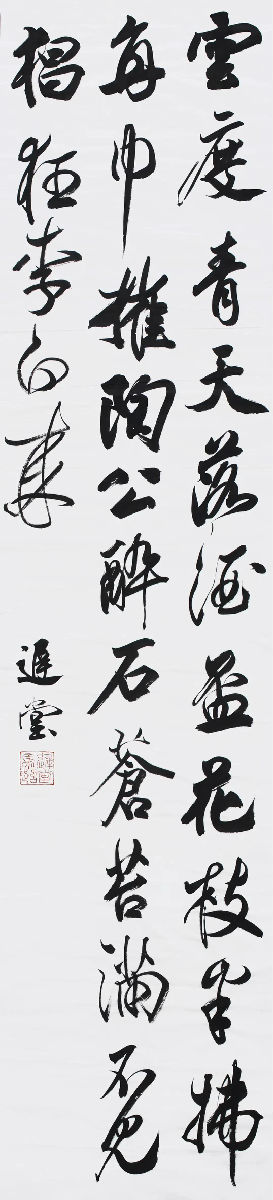 雲度青天落酒盃花枝半拂
巾摧陶公醉石蒼苔滿不見
猖狂李白來
遲堂